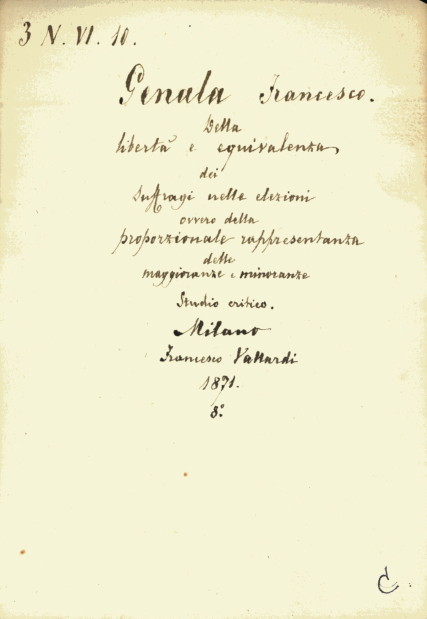 3 N. VI. 10.
Genala Francesco.
Della
libertà e equivalenza
dei
suffragi nelle elezioni
ovvero della
proporzionale rappresentanza
delle
maggioranze e minoranze
Studio critico.
Milano
Francesco Vallardi
1871.
8.°
C